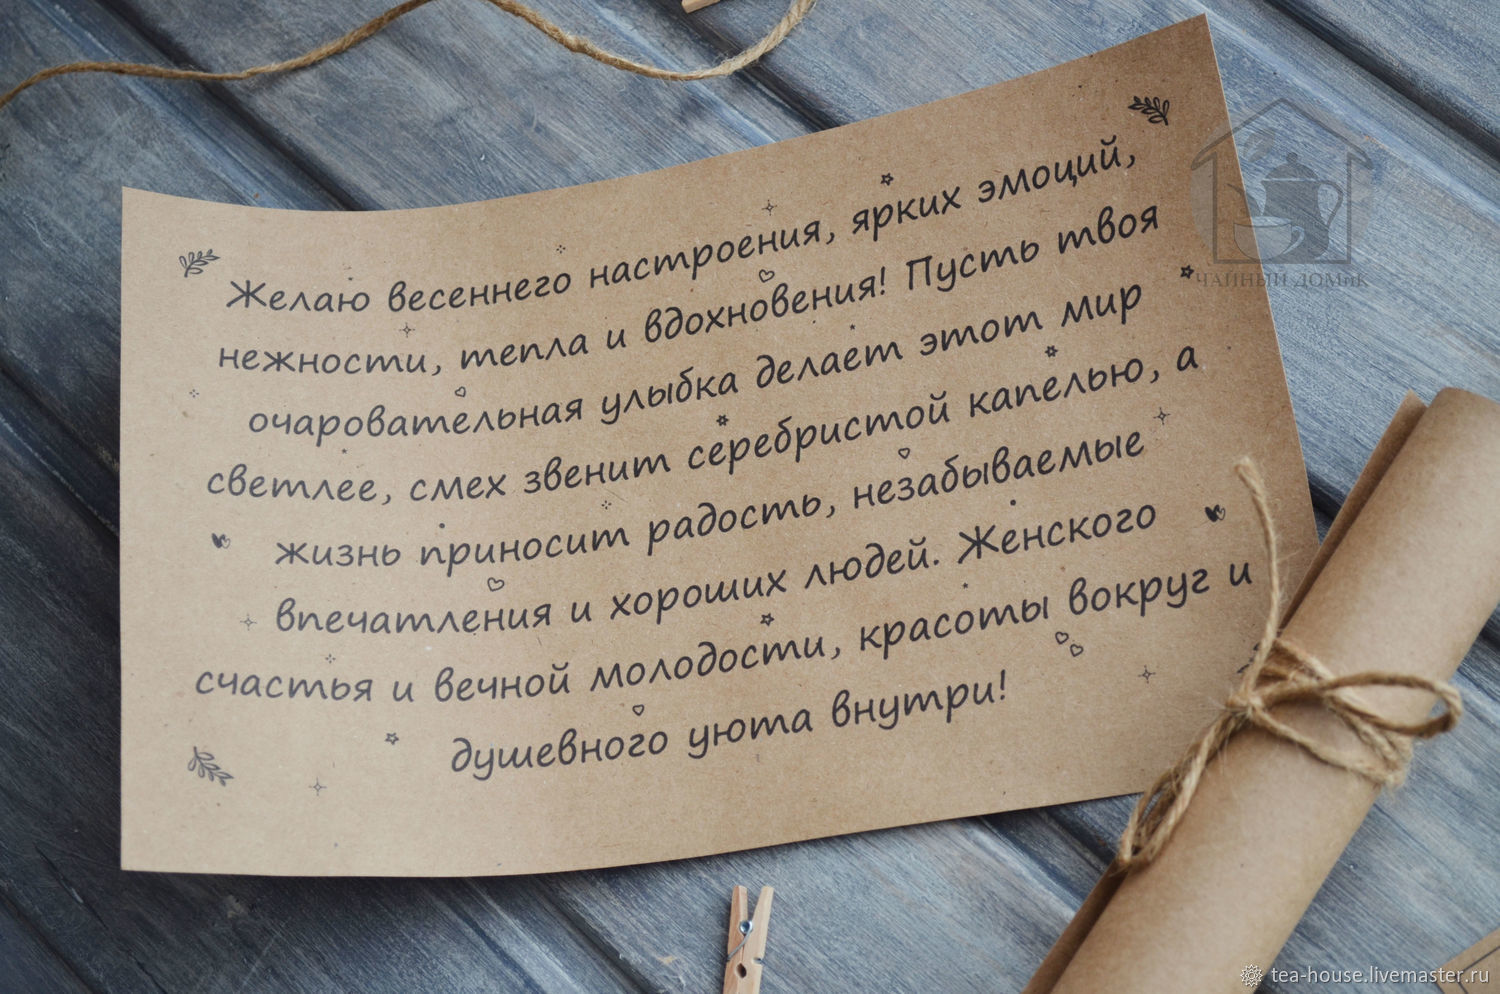 Желаю весеннего настроения, ярких эмоций,
нежности, тепла и вдохновения! Пусть твоя
очаровательная улыбка делает этот мир
светлее, смех звенит серебристой капелью, а
жизнь приносит радость, незабываемые
впечатления и хороших людей. Женского
счастья и вечной молодости, красоты вокруг и
душевного уюта внутри!
ЧАЙНЫЙ ДОМиК
tea-house.livemaster.ru